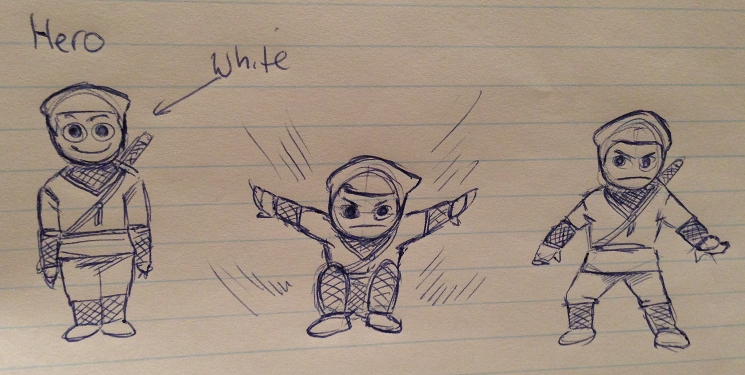 Hero
White